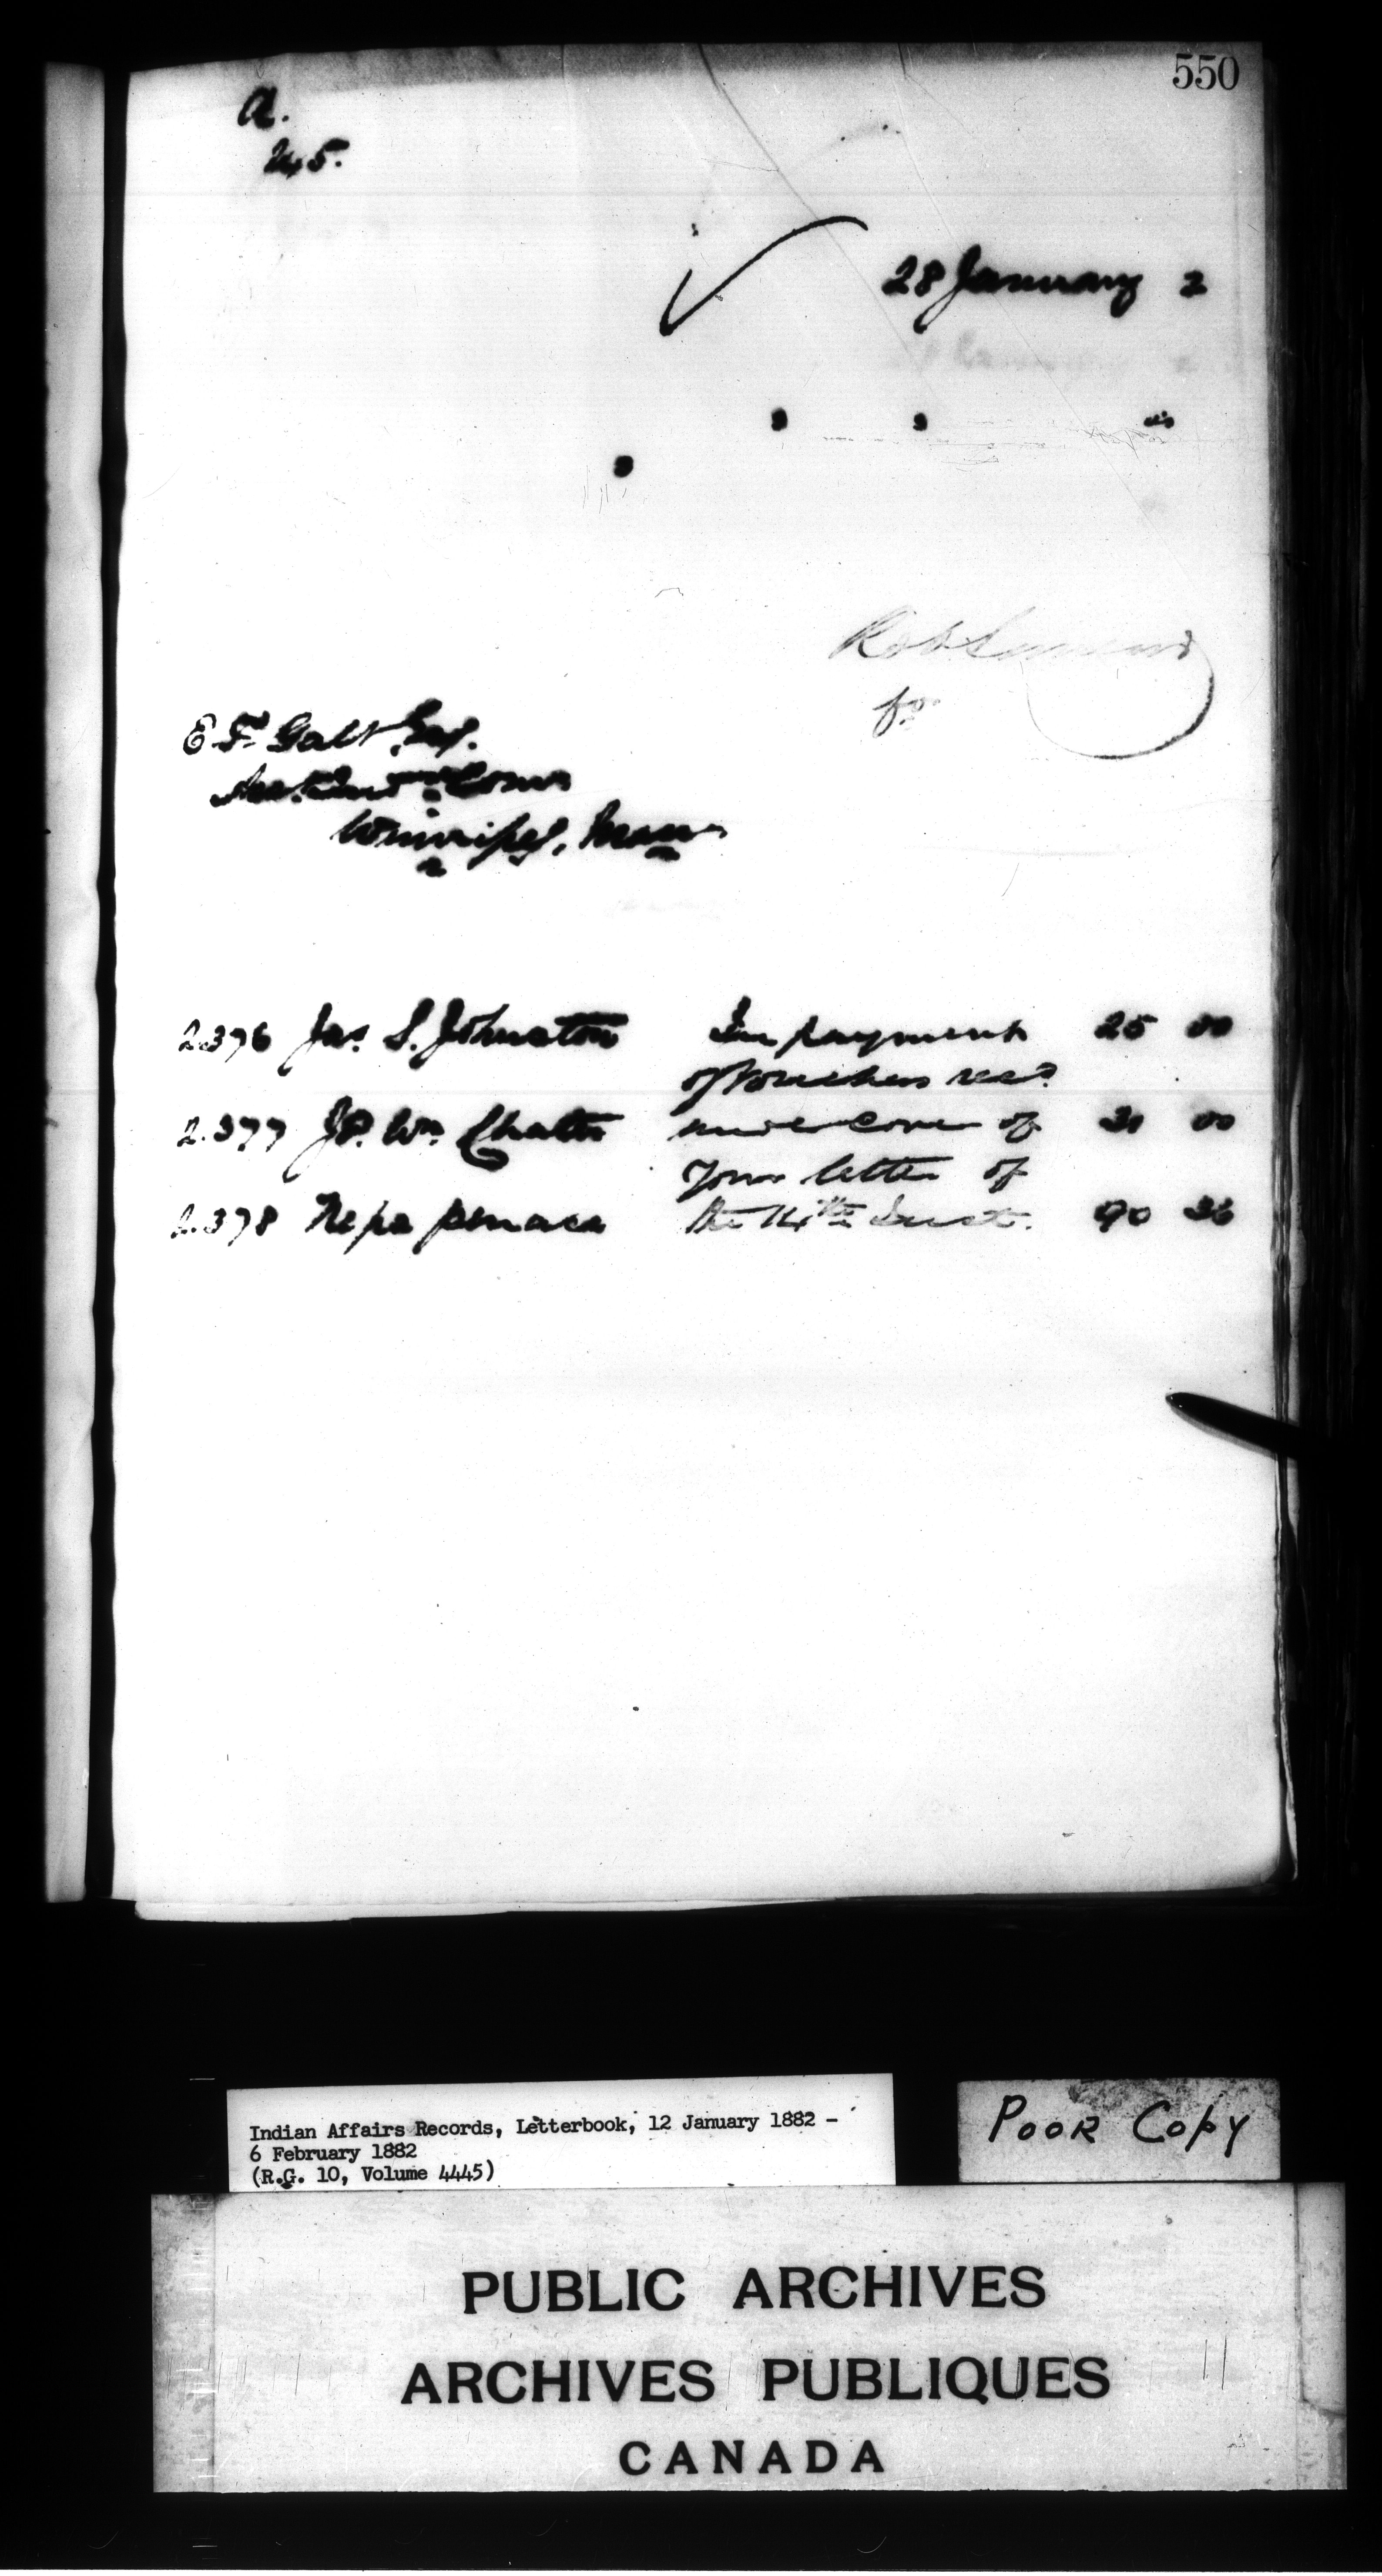 550
a.
28 January 2
E. F. Galt Esq.
Winnipeg, Man
2376 Jas. S. Johnston In payment 25 00
of Vouchers recd.
2.377 Jr. Wm. under cover of 31 00
your letter of
2.378 the 14th Inst. 90 36
Indian Affairs Records, Letterbook, 12 January 1882 -
6 February 1882
(R.G. 10, Volume 4445)
POOR COPY
PUBLIC ARCHIVES
ARCHIVES PUBLIQUES
CANADA